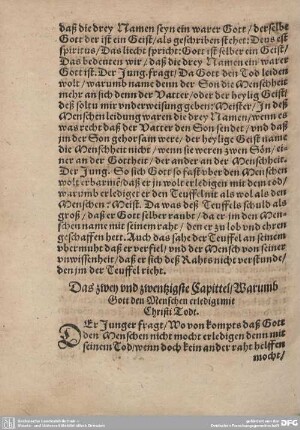 daß die drey Namen seyn ein warer Gott / derselbe
Gott der ist ein Geist / als geschriben stehet: Deus est
spiritus / Das liecht spricht: Gott ist selber ein Geist /
Das bedeuten wir / daß die drey Namen ein warer
Gott ist. Der Jung. fragt / Da Gott den Tod leiden
wolt / warumb name denn der Son die Menscheit
mehr an sich denn der Vatter / oder der heylig Geist
deß soltu mir vnderweisung geben: Meister / In deß
Menschen leidung waren die drey Namen / wenn es
was recht daß der Vatter den Son sendet / vnd daß
jm der Son gehorsam were / der heylige Geist name
die Menscheit nicht / wenn sie weren zwen Sön / ei-
ner an der Gottheit / der ander an der Menschheit.
Der Jung. So sich Gott so fast vber den Menschen
wolt erbarmē / daß er jn wolt erledigen mit dem tod /
warumb erlediget er den Teuffel nit als wol als den
Menschen: Meist. Da was deß Teuffels schuld als
groß / daß er Gott selber raubt / da er im den Men-
schen name mit seinem raht / den er zu lob vnd ehren
geschaffen hett. Auch das sahe der Teuffel an seinem
vbermuht daß er verfiel / vnd der Mensch von seiner
vnwissenheit / daß er sich deß Rahts nicht verstunde /
den jm der Teuffel rieht.
Das zwey vnd zwentzigste Capittel / Warumb
Gott den Menschen erlediget mit
Christi Todt.
DEr Junger fragt / Wo von kompts daß Gott
den Menschen nicht mocht erledigen denn mit
seinem Tod / wenn doch kein ander raht helffen
mocht /